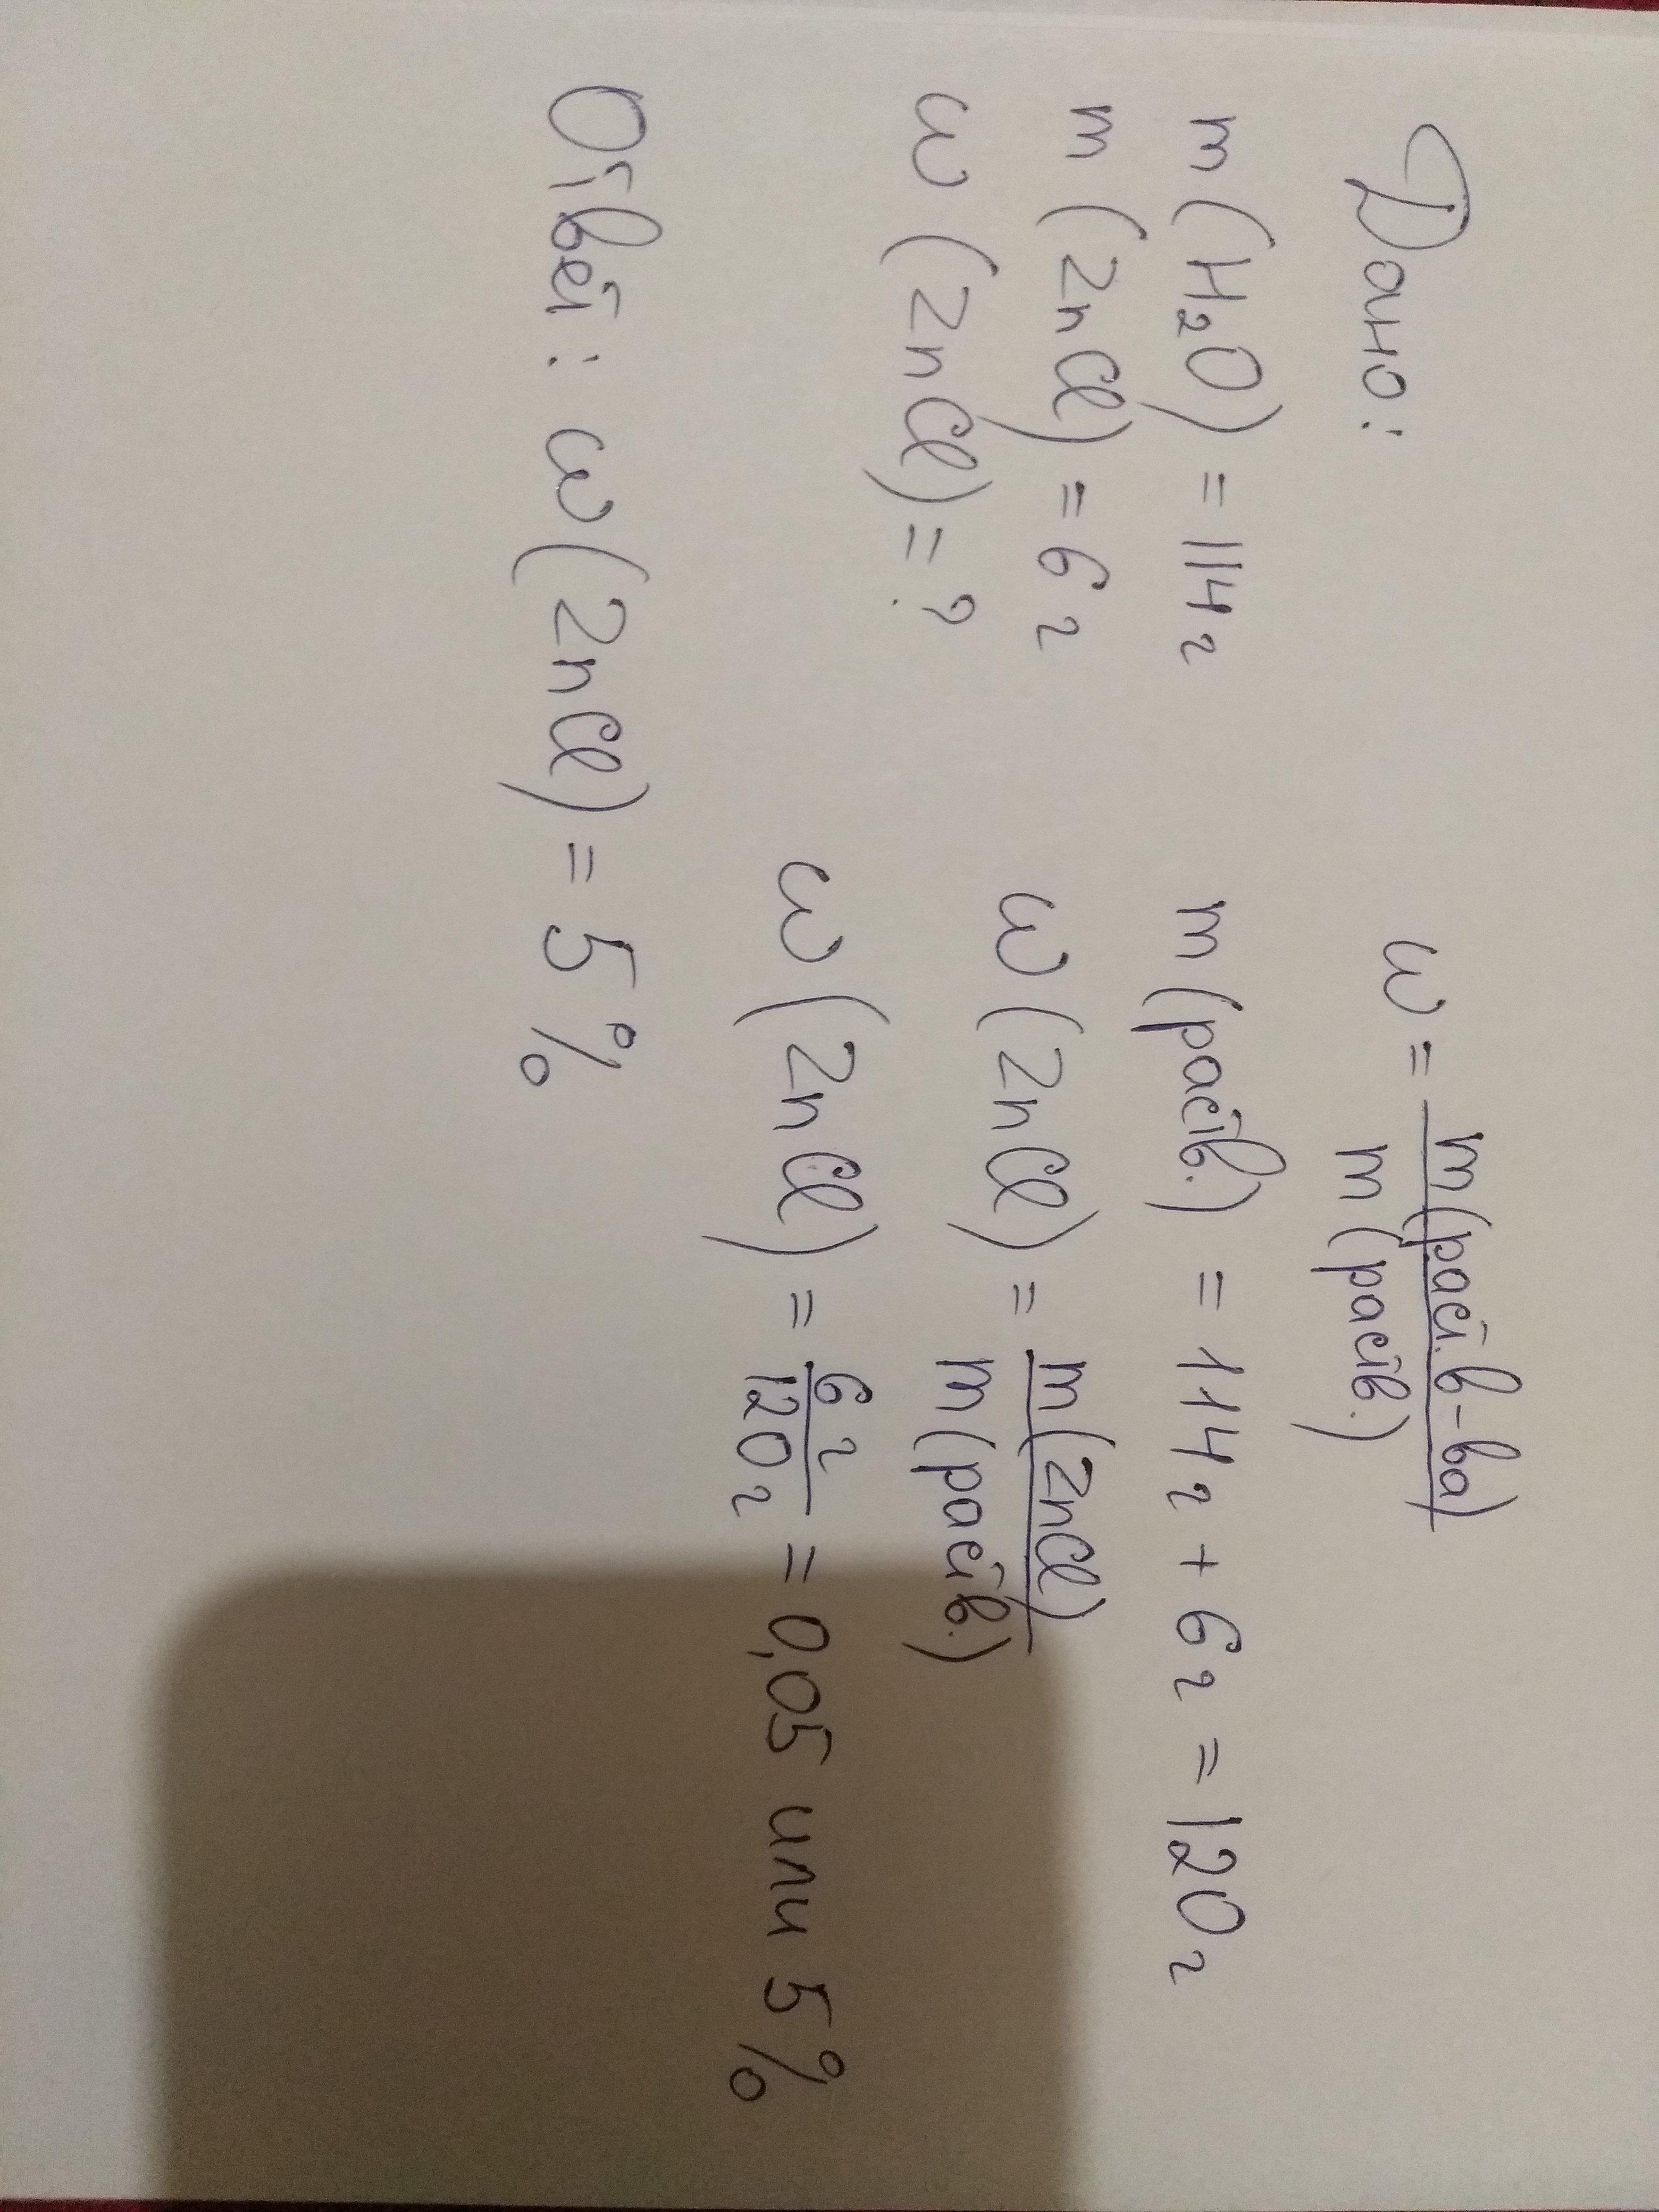 Дано:
m (H₂O) = 114 г
m (ZnCl) = 6 г
ω (ZnCl) = ?
ω = m(раст. в-ва)
m (раств.)
m (раств.) = 114 г + 6 г = 120 г
ω (ZnCl) = m (ZnCl)
m (раств.)
ω (ZnCl) = 6 г
120 г = 0,05 или 5 %
Ответ: ω (ZnCl) = 5 %